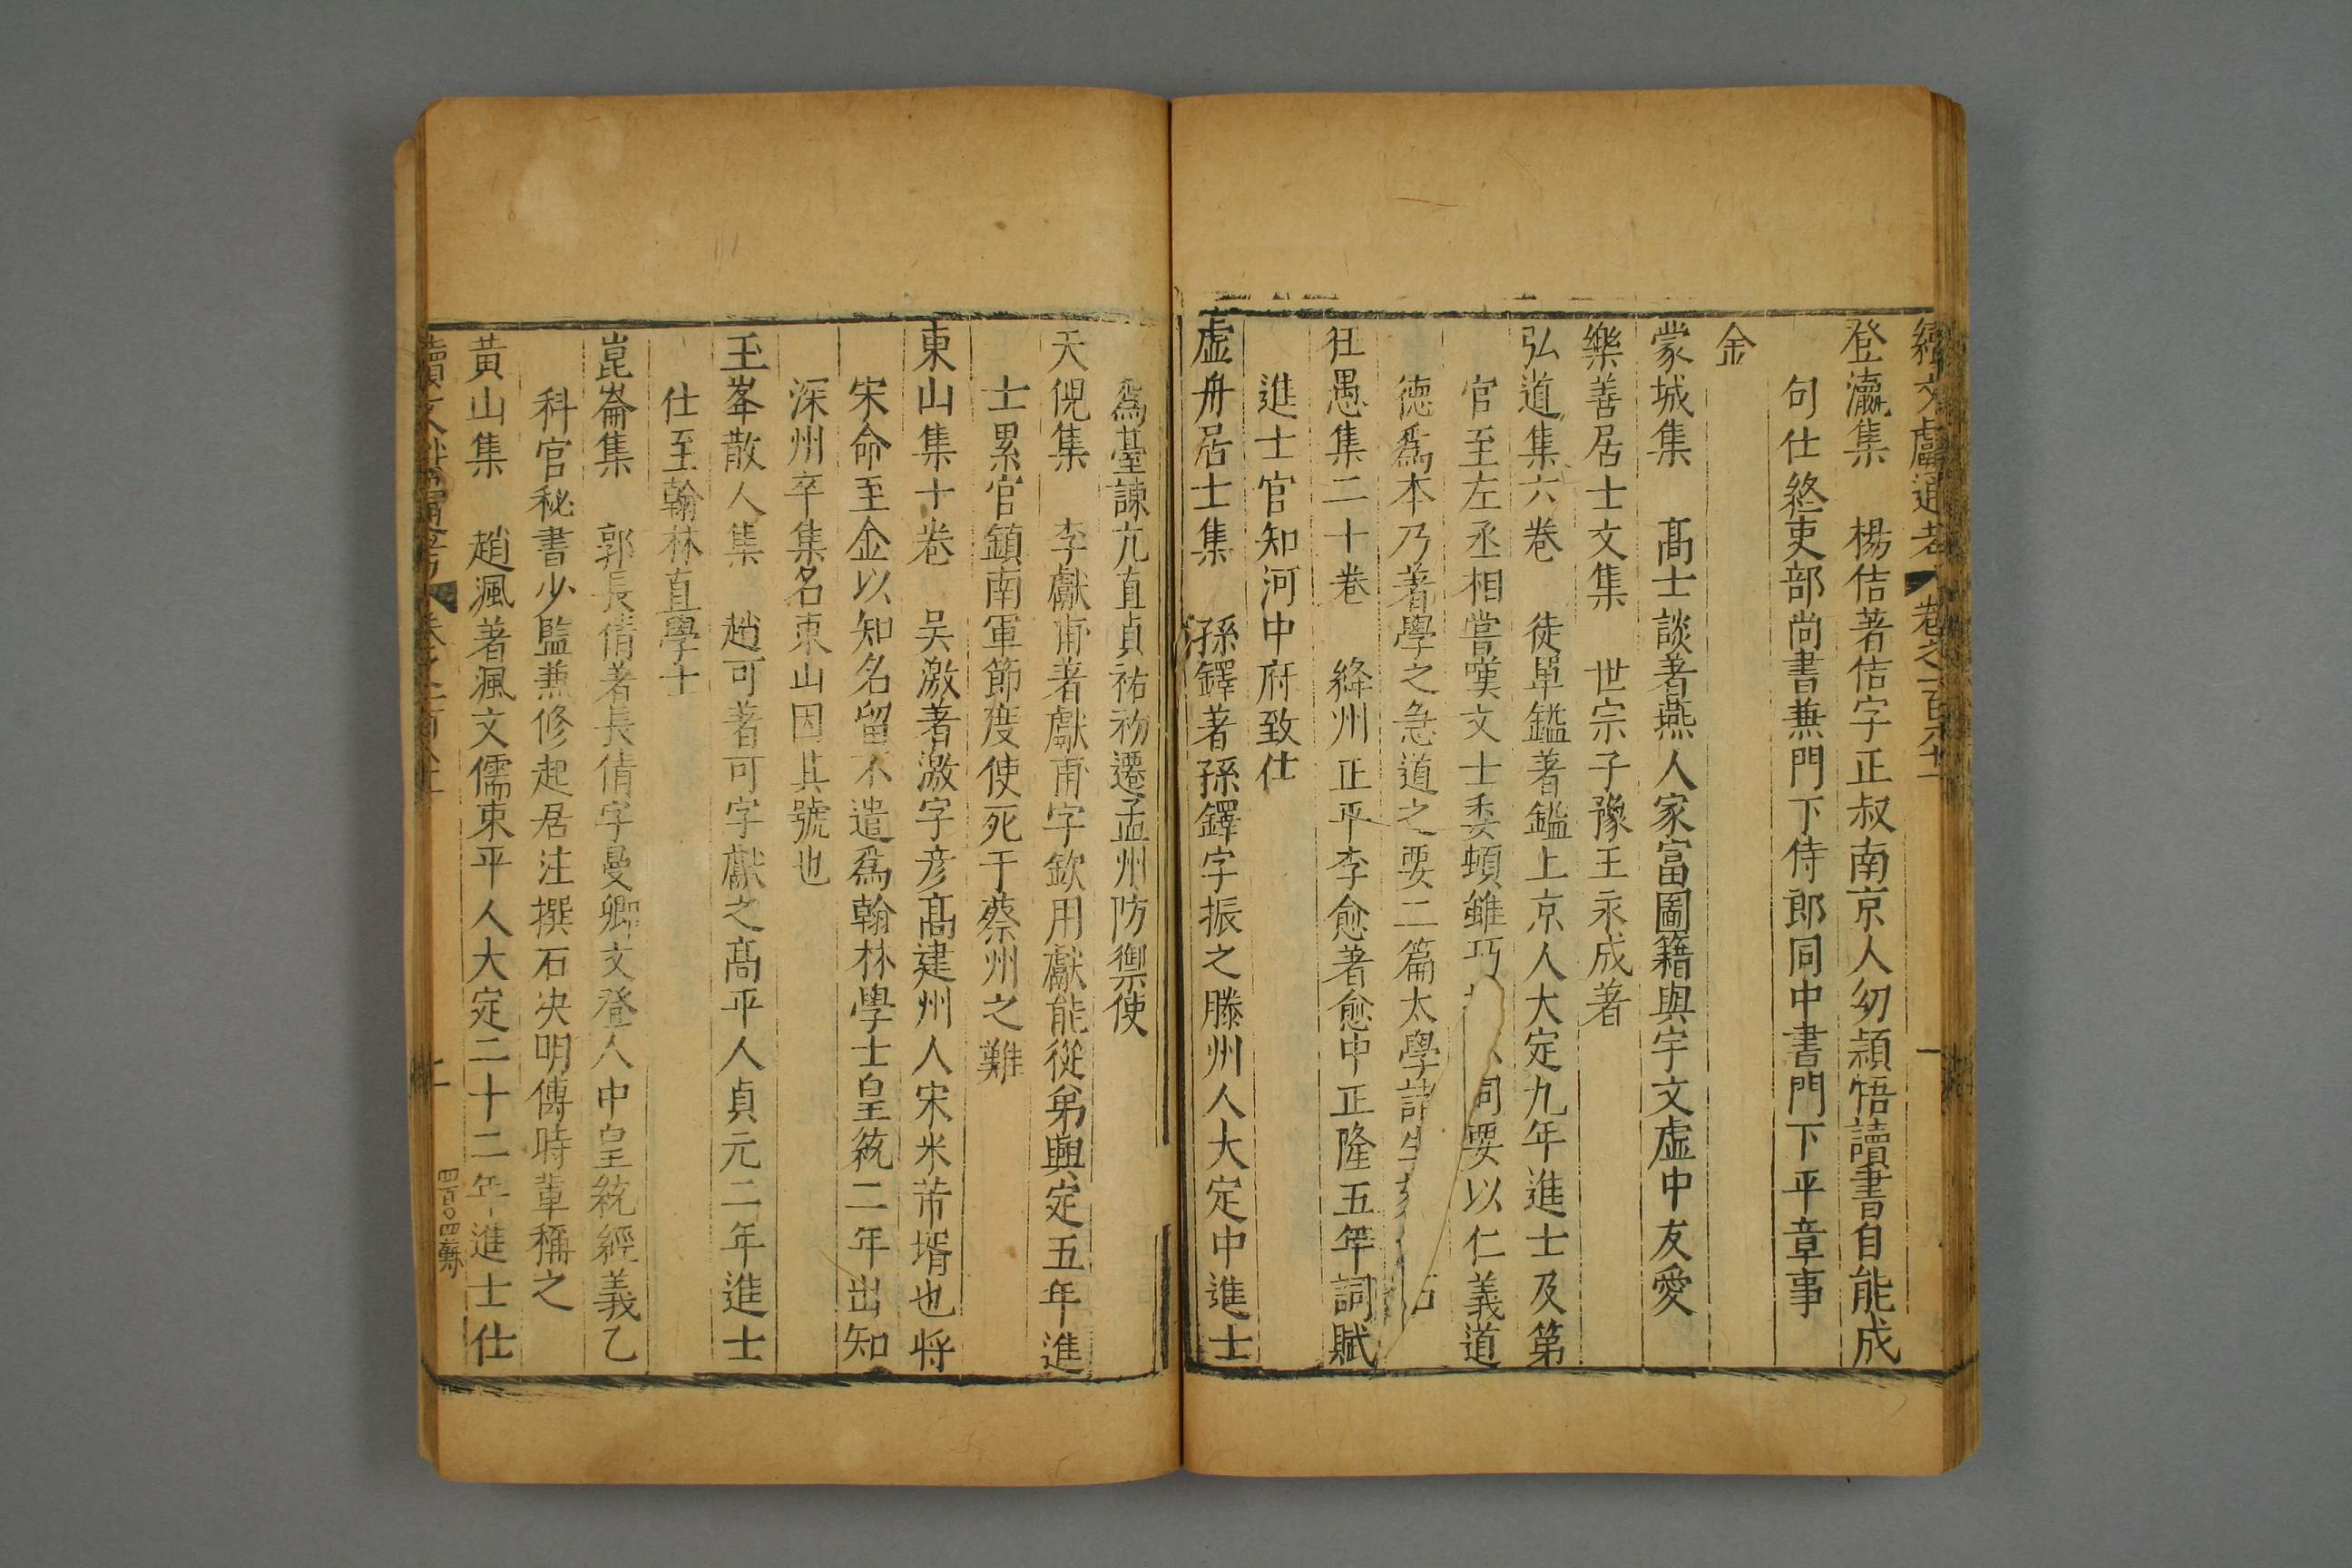 續文獻通考 卷之一百八十 一
登瀛集 楊佶著佶字正叔南京人幼頴悟讀書自能成
句仕終吏部尚書兼門下侍郎同中書門下平章事
金
蒙城集 髙士談著燕人家富圖籍與宇文虛中友愛
樂善居士文集 世宗子豫王永成著
弘道集六巻 徒單鎰著鎰上京人大定九年進士及第
官至左丞相嘗嘆文士委頓雖巧 同要以仁義道
德爲本乃著學之急道之要二篇太學諸生 石
狂愚集二十巻 絳州正平李愈著愈中正隆五年詞賦
進士官知河中府致仕
虛舟居士集 孫鐸著孫鐸字振之滕州人大定中進士
爲臺諫亢直貞祐初遷孟州防禦使
天倪集 李獻甫著獻甫字欽用獻能從弟興定五年進
士累官鎮南軍節度使死于蔡州之難
東山集十巻 吴激著激字彦髙建州人宋米芾壻也将
宋命至金以知名留不遣爲翰林學士皇統二年出知
深州卒集名東山因其號也
玉峯散人集 趙可著可字獻之髙平人貞元二年進士
仕至翰林直學士
崑崙集 郭長倩著長倩字曼卿文登人中皇統經義乙
科官秘書少監兼修起居注撰石决明傳時輩稱之
黄山集 趙渢著渢文儒東平人大定二十二年進士仕
續文獻通考 卷之一百八十 二
四百〇四